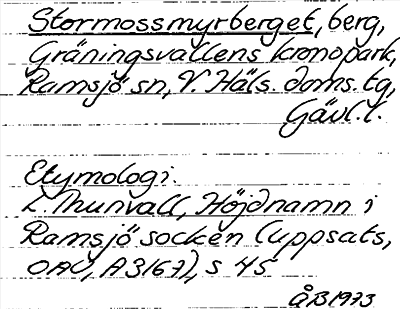 Stormossmyrberget, berg,
Gräningsvallens kronopark,
Ramsjö sn, V. Häls. doms. tg,
Gävl. l.
Etymologi.
L. Thunvall, Höjdnamn i
Ramsjö socken (uppsats,
OAU, A3167), s 45
ÅB 1973